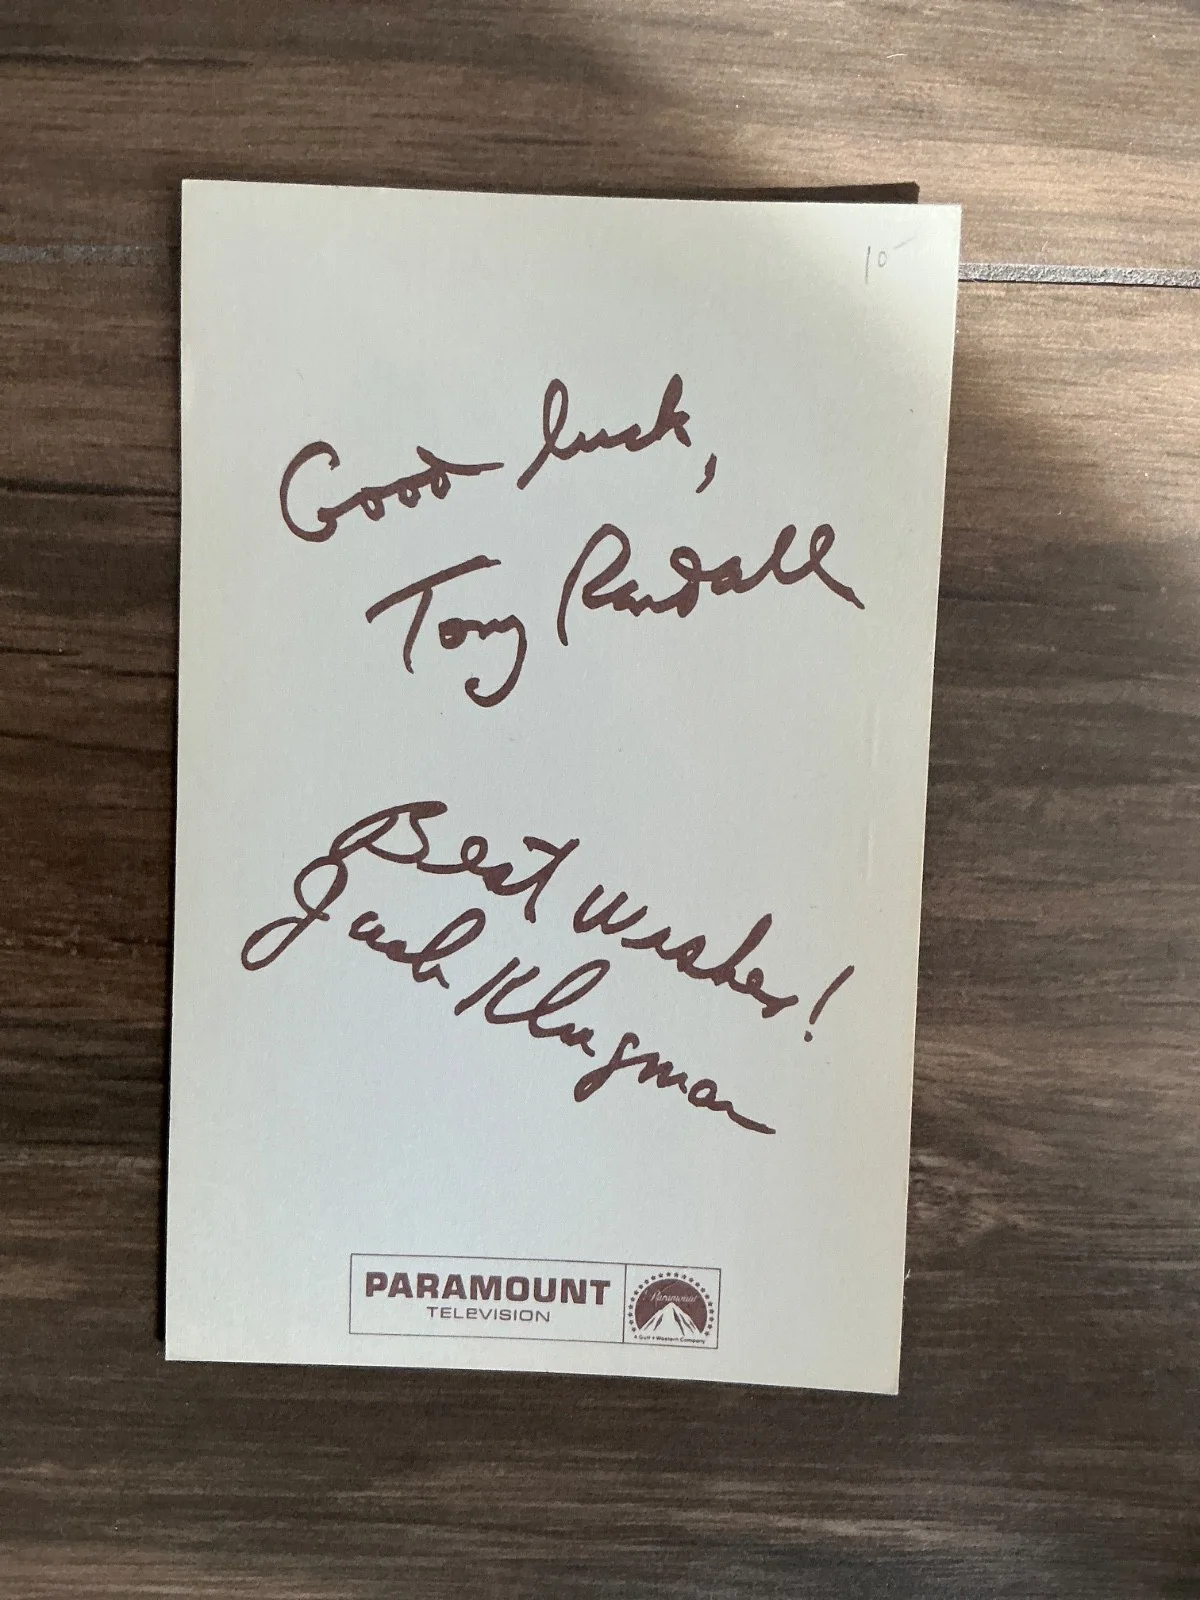 10-
Good luck,
Tony Randall
Best Wishes!
Jack Klugman
PARAMOUNT
TELEVISION
Paramount
A Gulf + Western Company